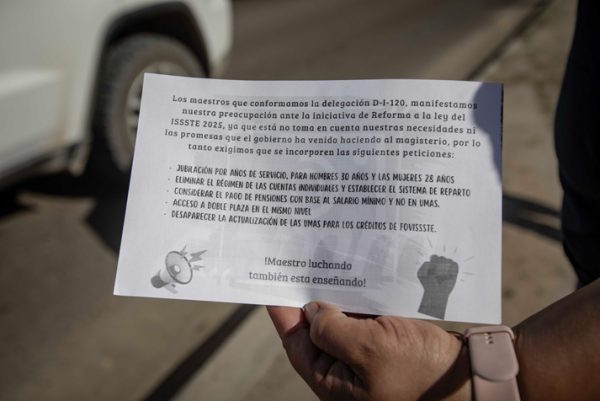 Los maestros que conformamos la delegación D-I-120, manifestamos
nuestra preocupación ante la iniciativa de Reforma a la ley del
ISSSTE 2025, ya que está no toma en cuenta nuestras necesidades ni
las promesas que el gobierno ha venido haciendo al magisterio, por lo
tanto exigimos que se incorporen las siguientes peticiones:
· JUBILACIÓN POR AÑOS DE SERVICIO, PARA HOMBRES 30 AÑOS Y LAS MUJERES 28 AÑOS
· ELIMINAR EL RÉGIMEN DE LAS CUENTAS INDIVIDUALES Y ESTABLECER EL SISTEMA DE REPARTO
· CONSIDERAR EL PAGO DE PENSIONES CON BASE AL SALARIO MÍNIMO Y NO EN UMAS.
· ACCESO A DOBLE PLAZA EN EL MISMO NIVEL
· DESAPARECER LA ACTUALIZACIÓN DE LAS UMAS PARA LOS CRÉDITOS DE FOVISSSTE.
!Maestro luchando
también esta enseñando!